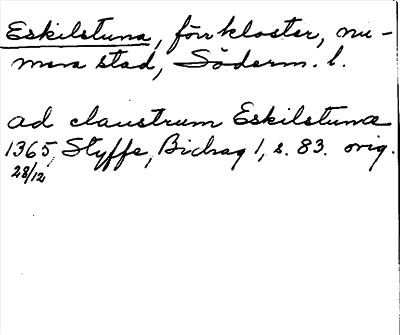 Eskilstuna, förr kloster, nu-
mera stad, Söderm. l.
ad claustrum Eskilstuna
1365, Styffe, Bidrag 1, s. 83. orig.
28/12